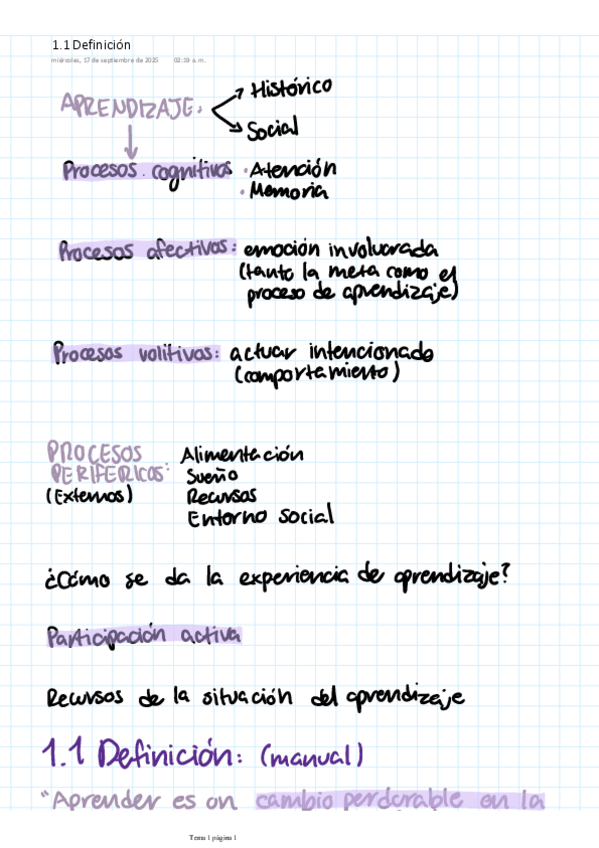 1.1 Definición
miércoles, 17 de septiembre de 2025 02:19 a. m.
APRENDIZAJE: Histórico
Social
Procesos cognitivos · Atención
· Memoria
Procesos afectivos: emoción involucrada
(tanto la meta como el
proceso de aprendizaje)
Procesos volitivos: actuar intencionado
(comportamiento)
PROCESOS Alimentación
PERIFERICOS: Sueño
(Externos) Recursos
Entorno social
¿Cómo se da la experiencia de aprendizaje?
Participación activa
Recursos de la situación del aprendizaje
1.1 Definición: (manual)
"Aprender es un cambio perdurable en la
Tema 1 página 1